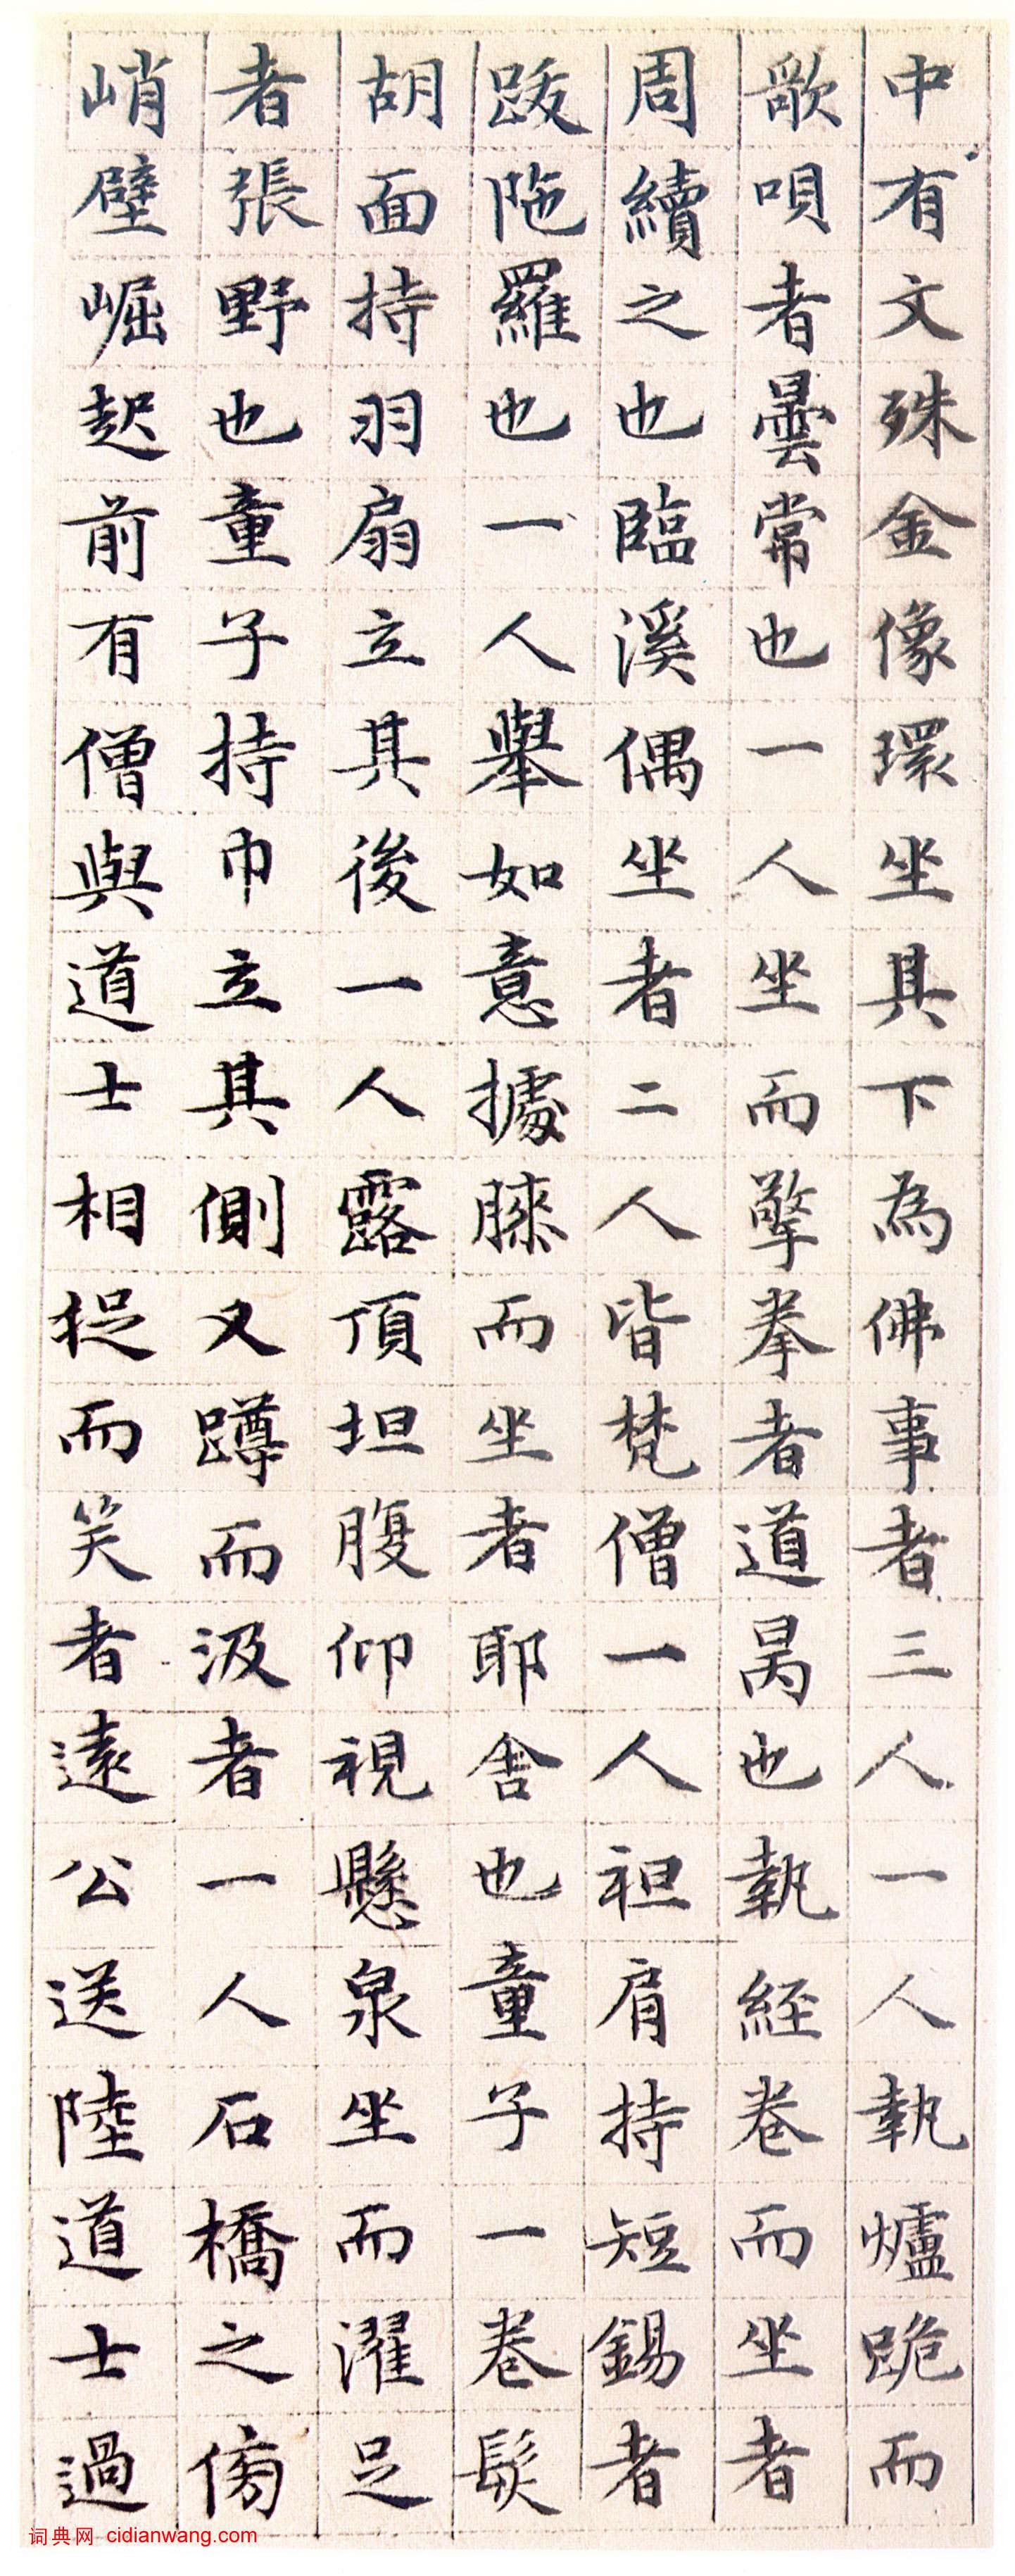 中有文殊金像環坐其下為佛事者三人一人執爐跪而
歌唄者曇常也一人坐而擎拳者道昺也執經卷而坐者
周續之也臨溪偶坐者二人皆梵僧一人袒肩持短錫者
跋陁羅也一人舉如意據膝而坐者耶舍也童子一卷髮
胡面持羽扇立其後一人露頂坦腹仰視懸泉坐而濯足
者張野也童子持巾立其側又蹲而汲者一人石橋之傍
峭壁崛起前有僧與道士相捉而笑者遠公送陸道士過
词典网 cidianwang.com